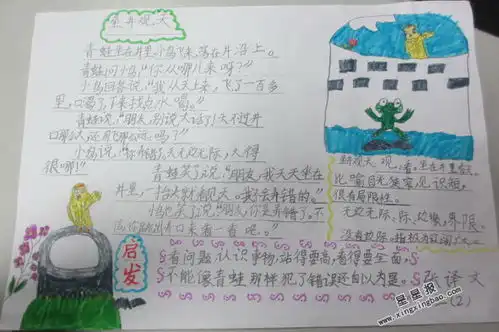 坐井观天
青蛙坐在井里,小鸟飞来,落在井沿上。
青蛙问小鸟:"你从哪儿来呀?"
小鸟回答说:"我从天上来,飞了一百多
里,口渴了,下来找点水喝。"
青蛙说:"朋友,别说大话了!天不过井
口那么大,还用飞那么远吗?"
小鸟说:"你弄错了,天无边无际,大得
很哪!"
青蛙笑了说:"朋友,我天天坐在
井里,一抬头就看见天。我不会弄错的。"
小鸟笑了说:"朋友,你是弄错了。不
信,你跳出井口来看一看吧。"
启发
看问题,认识事物,站得要高,看得要全面,
不能像青蛙那样犯了错误还自以为是。
坐井观天,观,看。坐在井里看天。
比喻目光狭窄,见识短,
很有局限性。
无边无际,际,边缘,界限。
没有边际。指极为辽阔广大。
张译文
二(2)
星星报
www.xingxingbao.com